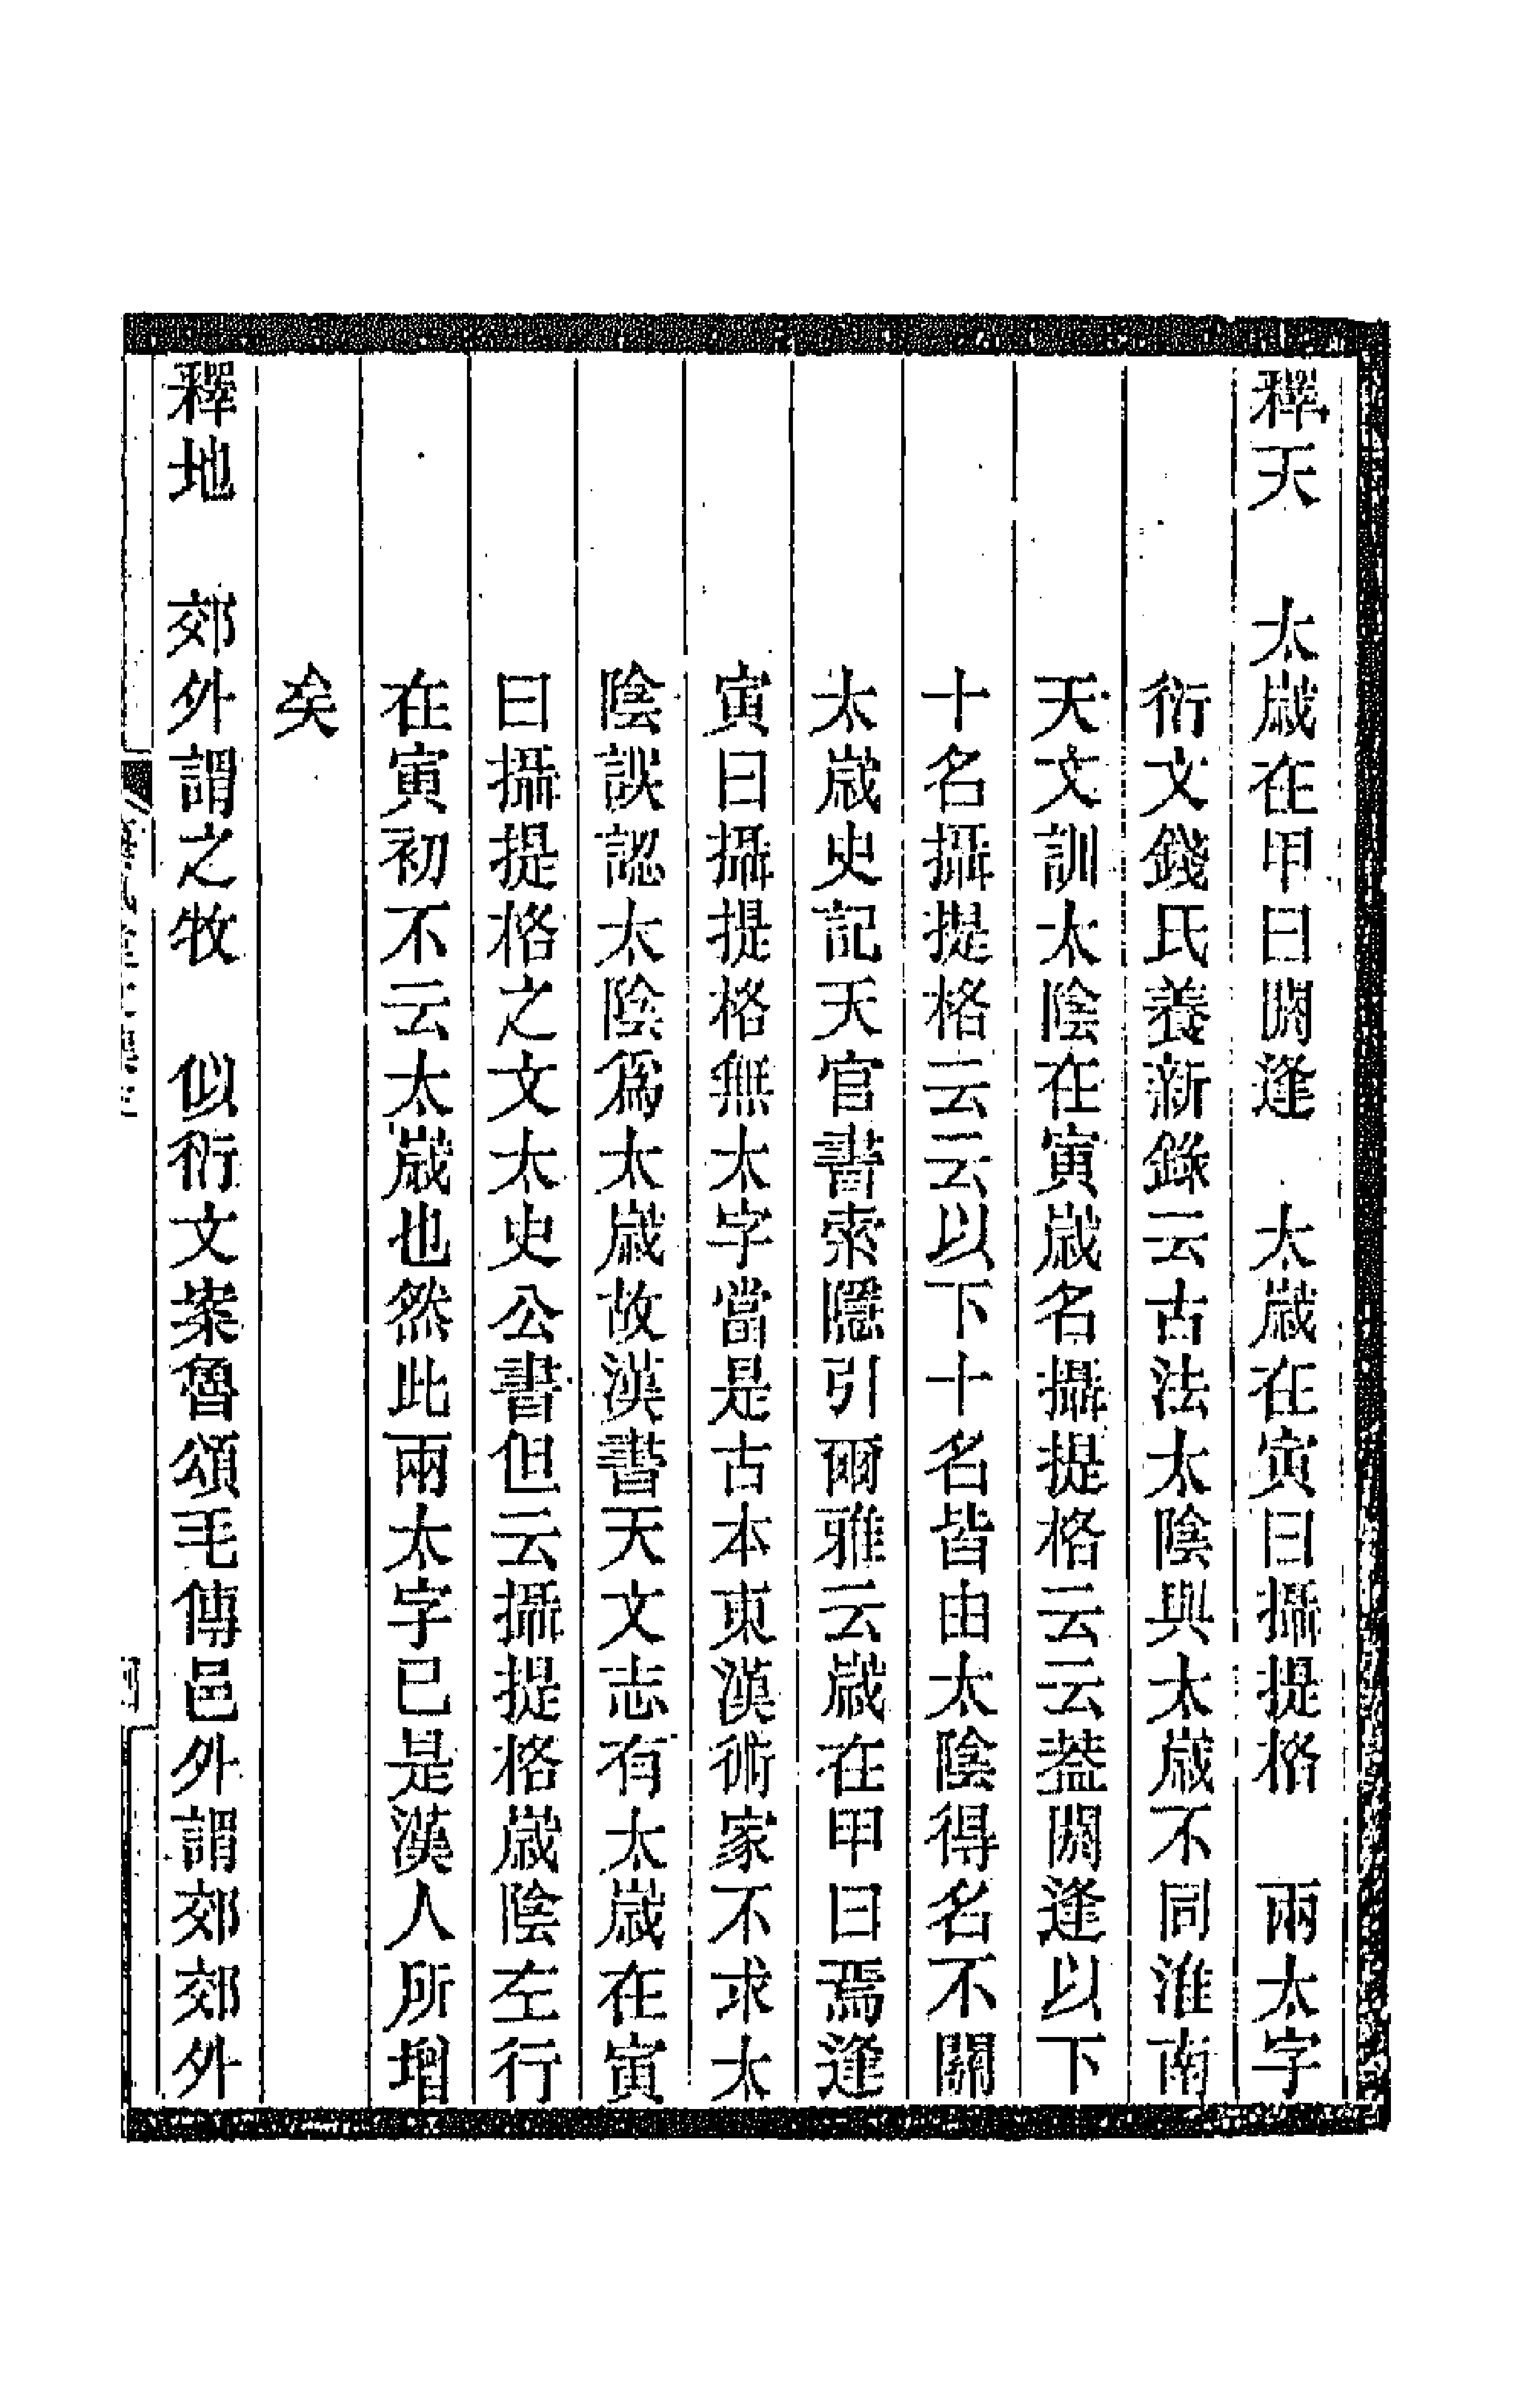 釋天　太歲在甲曰閼逢　太歲在寅曰攝提格　兩太字
衍文錢氏養新錄云古法太陰與太歲不同淮南
天文訓太陰在寅歲名攝提格云云葢閼逢以下
十名攝提格云云以下十名皆由太陰得名不關
太歲史記天官書索隱引爾雅云歲在甲曰焉逢
寅曰攝提格無太字當是古本東漢術家不求太
陰誤認太陰爲太歲故漢書天文志有太歲在寅
曰攝提格之文太史公書但云攝提格歲陰左行
在寅初不云太歲也然此兩太字已是漢人所增
矣
釋地　郊外謂之牧　似衍文案魯頌毛傳邑外謂郊郊外
四